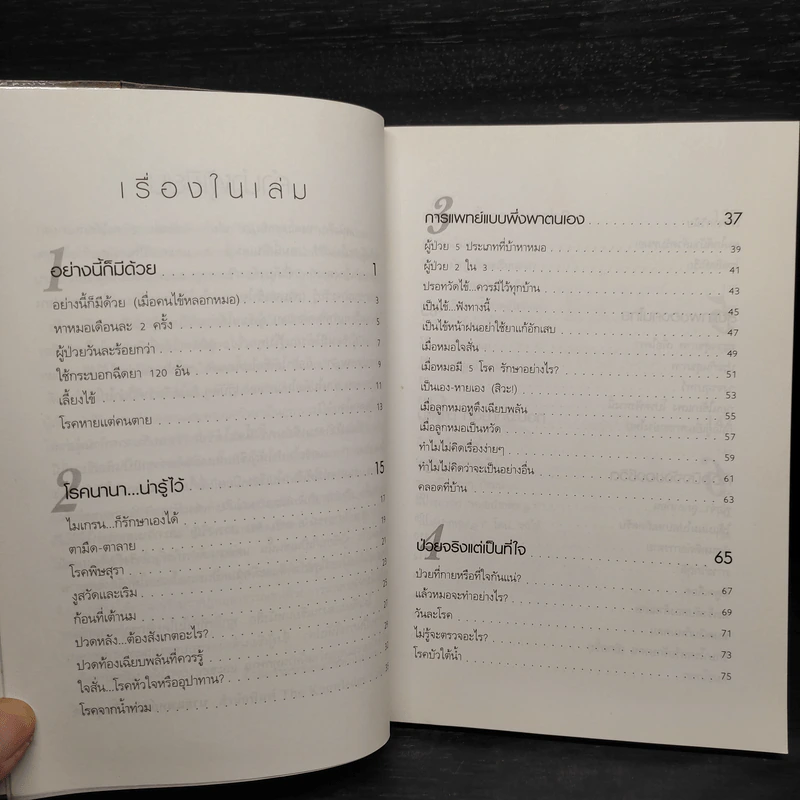 เรื่องในเล่ม
1
อย่างนี้ก็มีด้วย 1
อย่างนี้ก็มีด้วย (เมื่อคนไข้หลอกหมอ) 3
หาหมอเดือนละ 2 ครั้ง 5
ผู้ป่วยวันละร้อยกว่า 7
ใช้กระบอกฉีดยา 120 อัน 9
เลี้ยงไข้ 11
โรคหายแต่คนตาย 13
2
โรคนานา...น่ารู้ไว้ 15
ไมเกรน...ก็รักษาเองได้ 17
ตามืด-ตาลาย 19
โรคพิษสุรา 21
งูสวัดและเริม
ก้อนที่เต้านม
ปวดหลัง...ต้องสังเกตอะไร?
ปวดท้องเฉียบพลันที่ควรรู้
ใจสั่น...โรคหัวใจหรืออุปาทาน?
โรคจากน้ำท่วม
3
การแพทย์แบบพึ่งพาตนเอง 37
ผู้ป่วย 5 ประเภทที่บ้าหาหมอ 39
ผู้ป่วย 2 ใน 3 41
ปรอทวัดไข้...ควรมีไว้ทุกบ้าน 43
เป็นไข้...ฟังทางนี้ 45
เป็นไข้หน้าฝนอย่าใช้ยาแก้อักเสบ 47
เมื่อหมอใจสั่น 49
เมื่อหมอมี 5 โรค รักษาอย่างไร? 51
เป็นเอง-หายเอง (สิวะ!) 53
เมื่อลูกหมอหูตึงเฉียบพลัน 55
เมื่อลูกหมอเป็นหวัด 57
ทำไมไม่คิดเรื่องง่ายๆ 59
ทำไมไม่คิดว่าจะเป็นอย่างอื่น 61
คลอดที่บ้าน 63
4
ป่วยจริงแต่เป็นที่ใจ 65
ป่วยที่กายหรือที่ใจกันแน่? 67
แล้วหมอจะทำอย่างไร? 69
วันละโรค 71
ไม่รู้จะตรวจอะไร? 73
โรคบัวใต้น้ำ 75